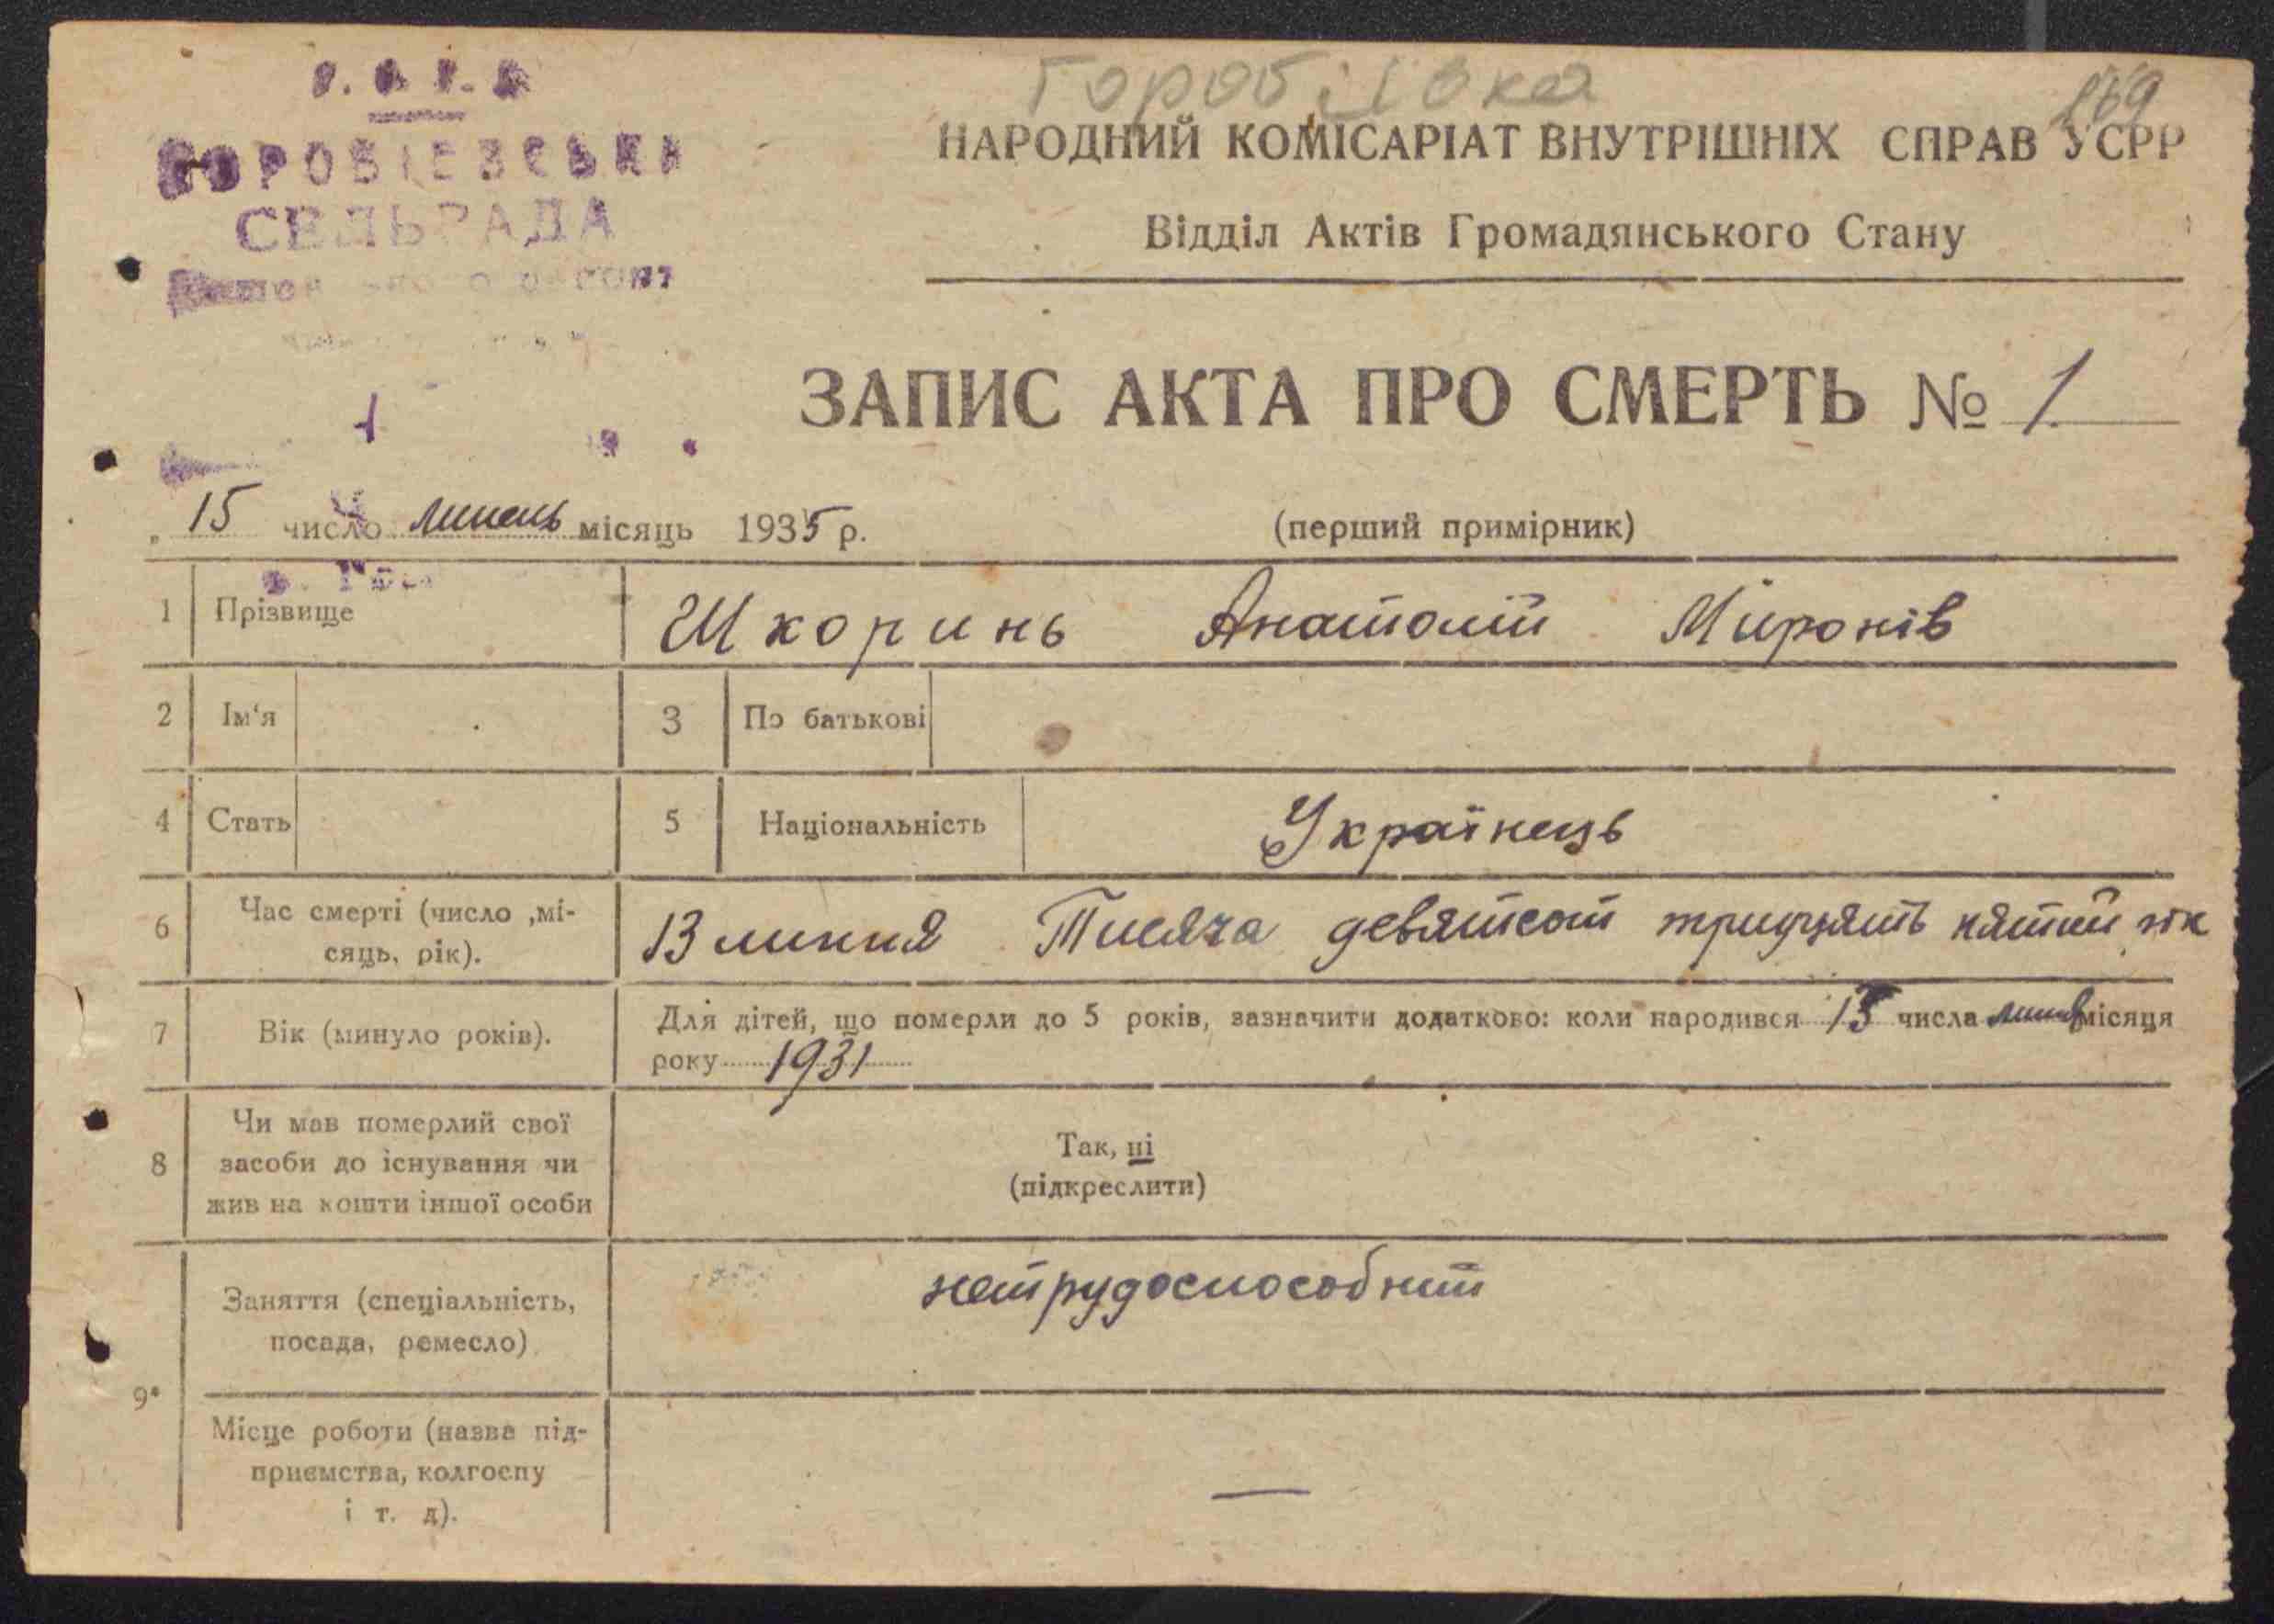 Горобіївка
169
НАРОДНИЙ КОМІСАРІАТ ВНУТРІШНІХ СПРАВ УСРР
Відділ Актів Громадянського Стану
СЕЛЬРАДА
ЗАПИС АКТА ПРО СМЕРТЬ № 1.
15 число липень місяць 1935 р.
(перший примірник)
1 Прізвище Шкоринь Анатолій Миронів
2 Ім‘я 3 По батькові
4 Стать 5 Національність Українець
6 Час смерті (число ,мі-
сяць, рік).
13 липня Тисяча девятсот тридцять пятий рік
7 Вік (минуло років).
Для дітей, що померли до 5 років, зазначити додатково: коли народився 15 числа липня місяця
року 1931
8 Чи мав померлий свої
засоби до існування чи
жив на кошти іншої особи
Так, ні
(підкреслити)
9
Заняття (спеціальність,
посада, ремесло)
нетрудоспособний
Місце роботи (назва під-
приємства, колгоспу
і т. д).
—